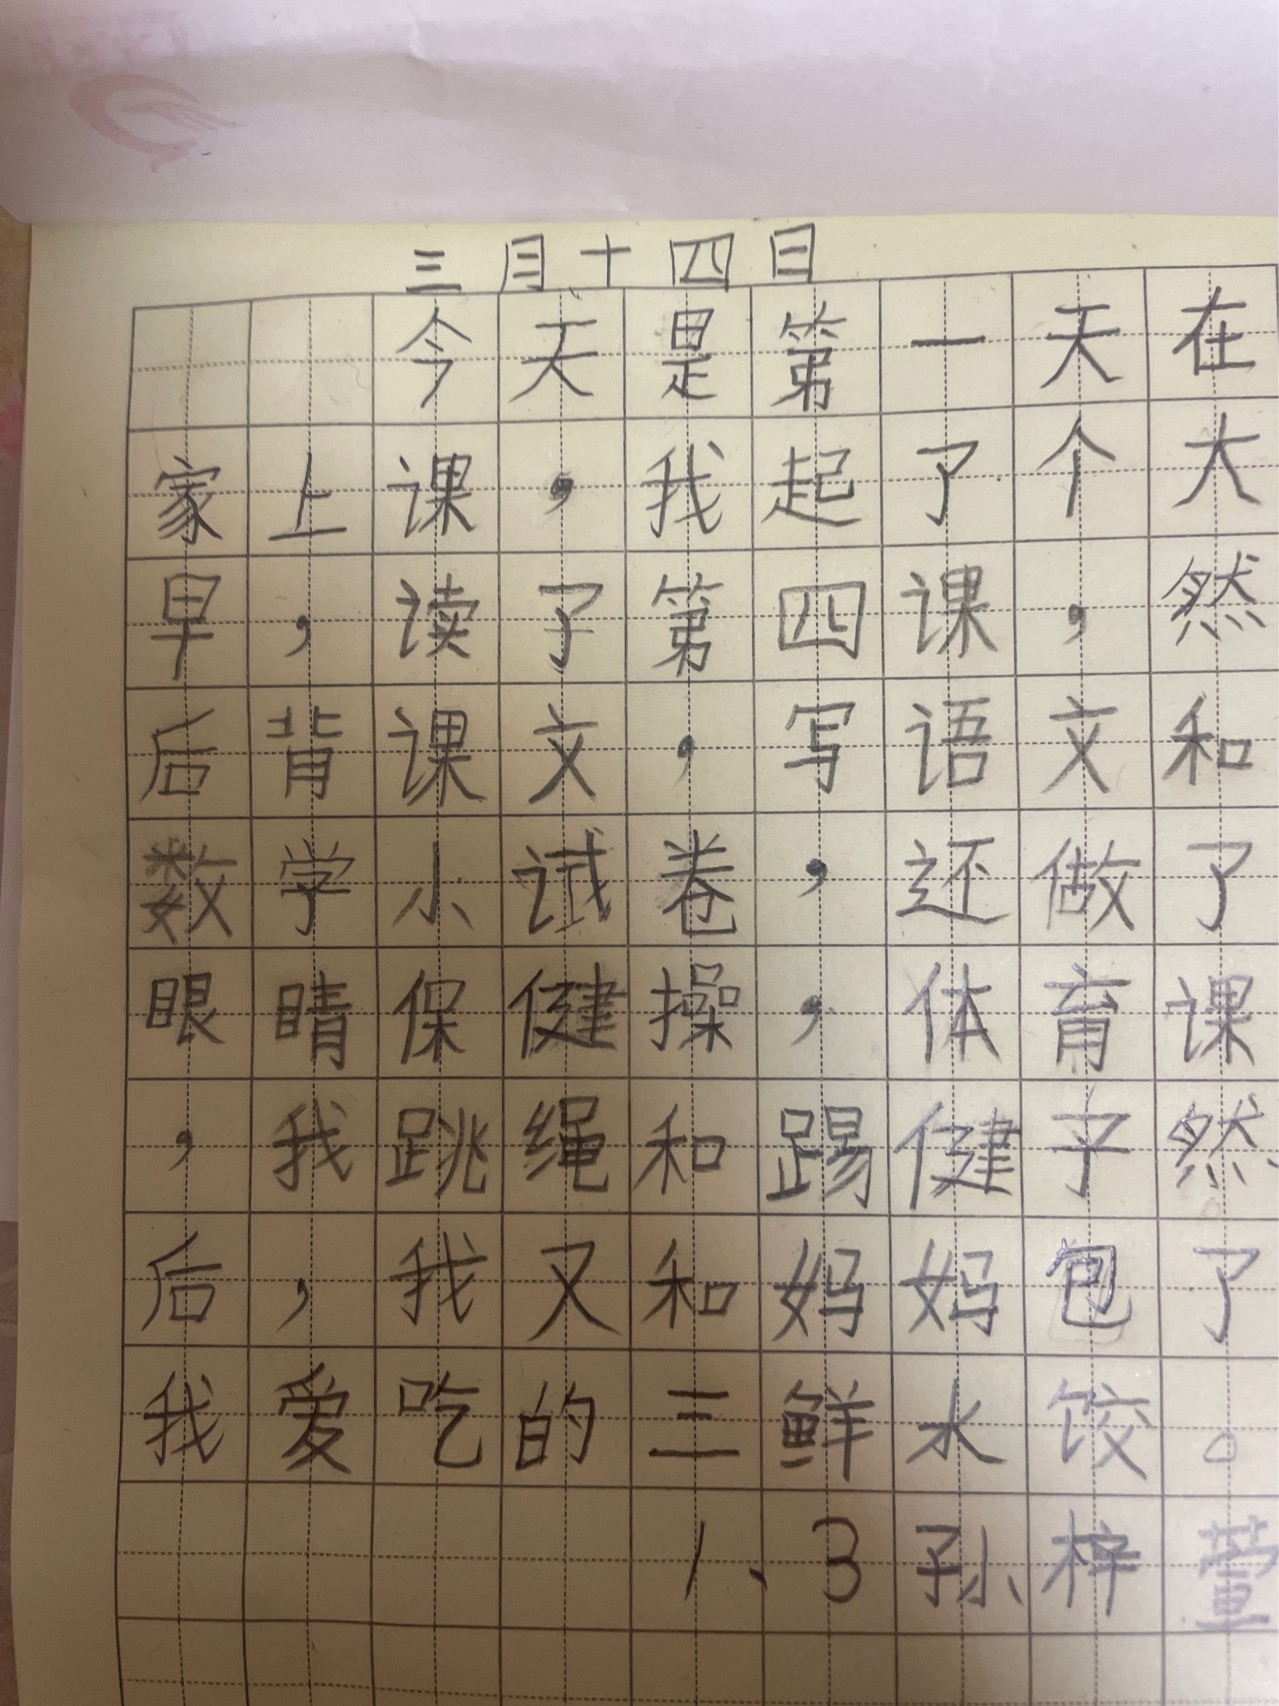 三月十四日
今天是第一天在
家上课，我起了个大
早，读了第四课，然
后背课文，写语文和
数学小试卷，还做了
眼睛保健操，体育课
，我跳绳和踢健子然
后，我又和妈妈包了
我爱吃的三鲜水饺。
1、3孙梓萱